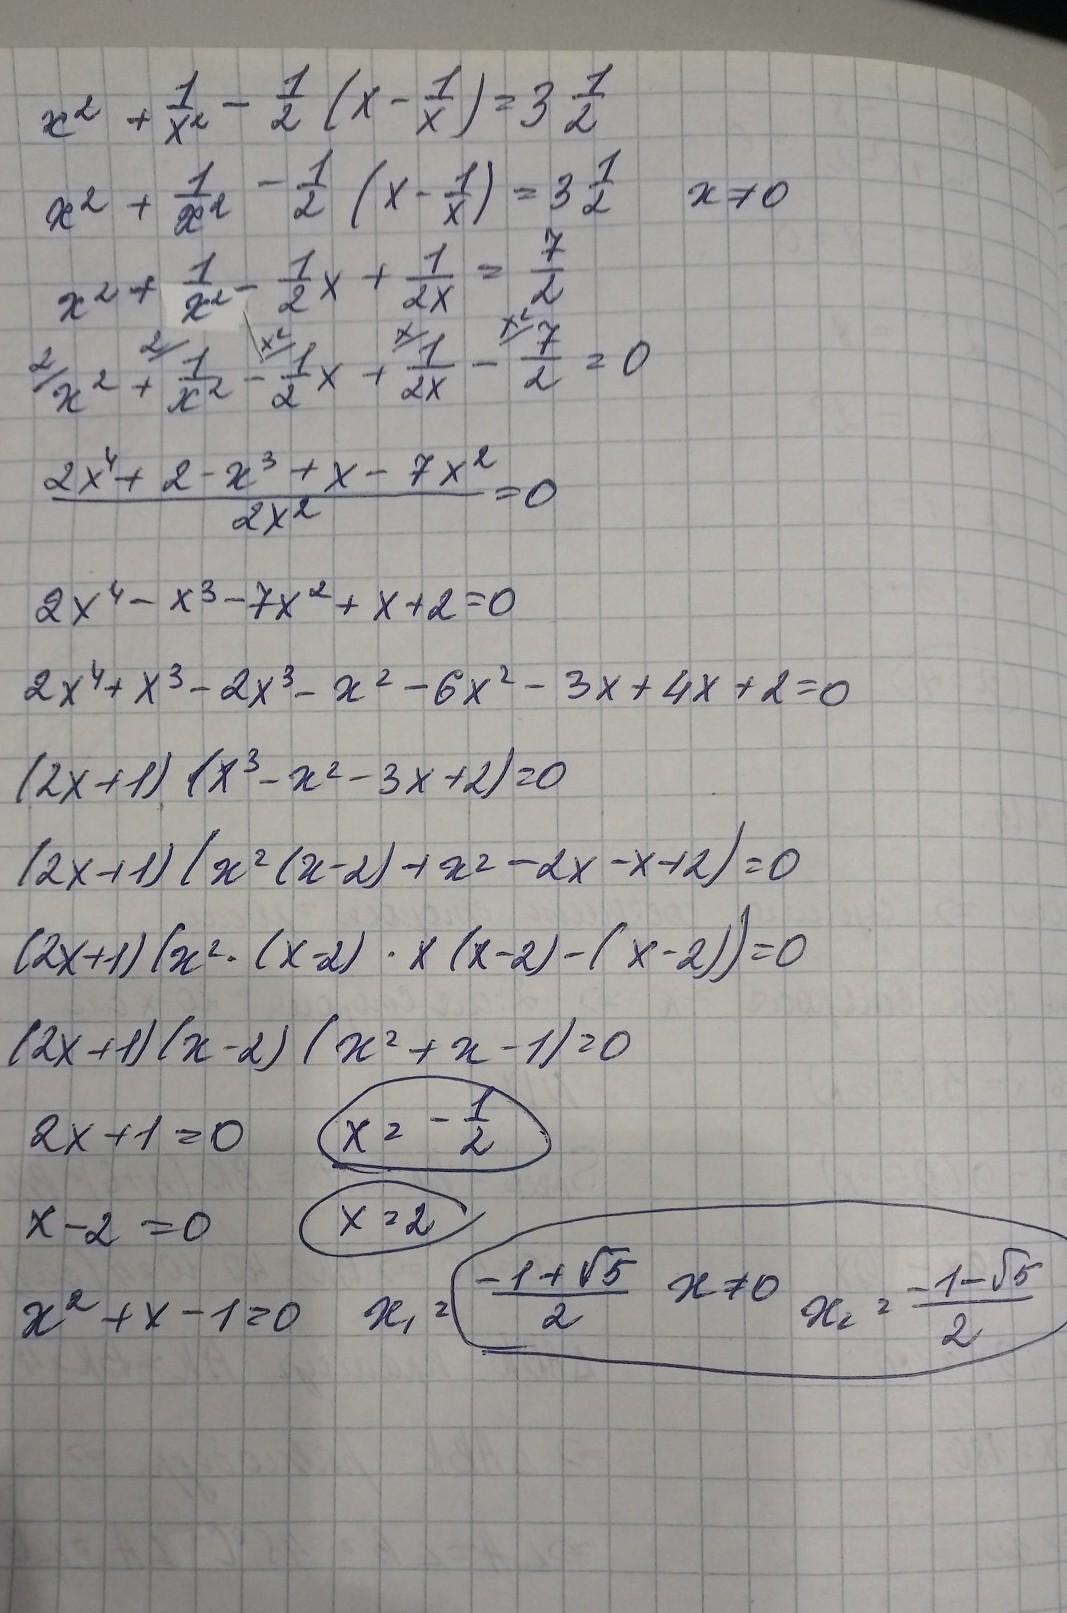 x² + 1/x² - 1/2 (x - 1/x) = 3 1/2
x² + 1/x² - 1/2 (x - 1/x) = 3 1/2 x ≠ 0
x² + 1/x² - 1/2 x + 1/2x = 7/2
2/ x² + 2/ 1/x² - x²/ 1/2 x + x/ 1/2x - x²/ 7/2 = 0
2x⁴ + 2 - x³ + x - 7x² / 2x² = 0
2x⁴ - x³ - 7x² + x + 2 = 0
2x⁴ + x³ - 2x³ - x² - 6x² - 3x + 4x + 2 = 0
(2x+1) (x³ - x² - 3x + 2) = 0
(2x+1) (x² (x-2) + x² - 2x - x + 2) = 0
(2x+1) (x² · (x-2) · x (x-2) - (x-2)) = 0
(2x+1) (x-2) (x² + x - 1) = 0
2x+1 = 0 x = - 1/2
x - 2 = 0 x = 2
x² + x - 1 = 0 x₁ = -1+√5 / 2 x ≠ 0 x₂ = -1-√5 / 2